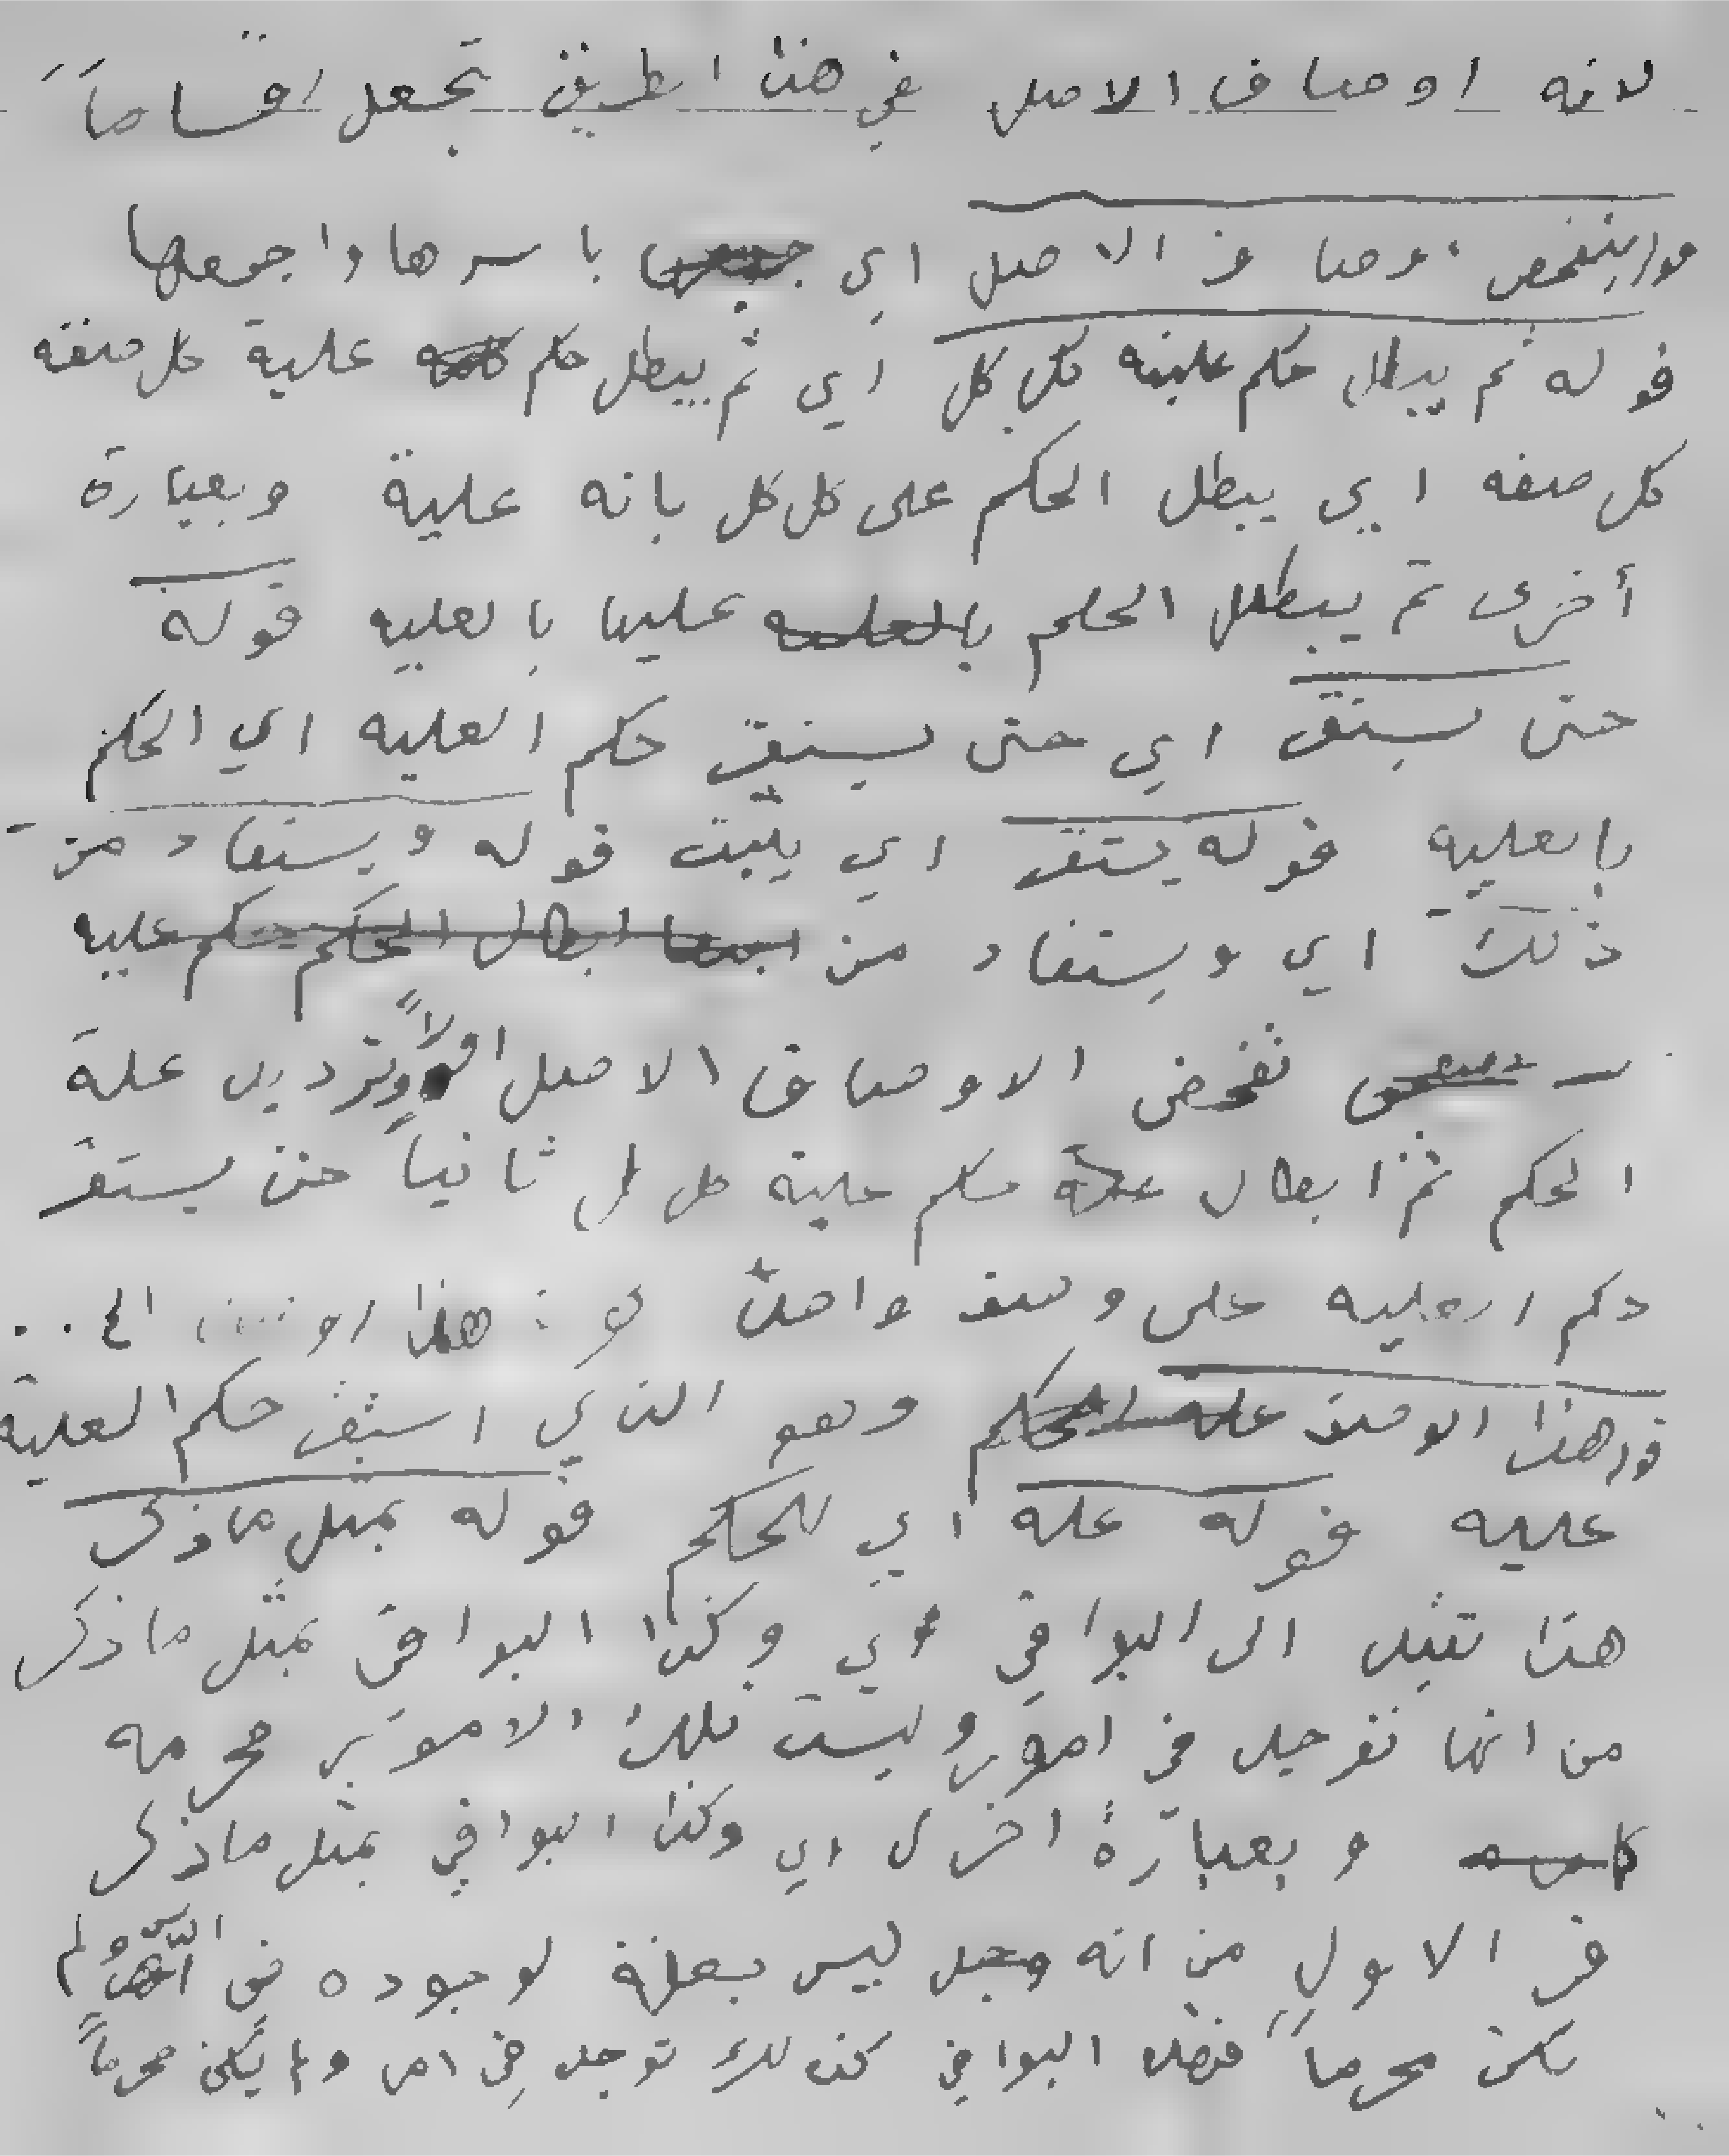 لانه اوصاف الاصل في هذا الطريق تجعل اقساماً
قوله يتفحص اوصاف الاصل اي باسرها واجمعها
قوله ثم يبطل حكم علية كل كل اي ثم يبطل حكم علية كل صفة
كل صفه اي يبطل الحكم على كل كل بانه علية وبعبارة
أخرى ثم يبطل الحكم عليها بالعليه قوله
حتى يستقر اي حتى يستقر حكم العليه اي الحكم
بالعليه قوله يستقر اي يثبت قوله ويستفاد من
ذلك اي ويستفاد من
تفحص الاوصاف الاصل اولاً وترديد علة
الحكم ثم ابطال حكم علية كل كل ثانياً حتى يستقر
حكم العليه على وصف واحد هذا
قوله هذا الوصف وهو الذي استقر حكم العلية
عليه قوله علة اي للحكم قوله بمثل ما ذكر
هذا تمثيل الى البواقي اي وكذا البواقي بمثل ما ذكر
من انها توجد في امور وليست تلك الامور محرمه
وبعبارة اخرى اي وكذا البواقي بمثل ما ذكر
في الاول من انه ليس بعلة لوجوده في ولم
يكن محرماً فهذه البواقي كذلك توجد في امر ولم يكن محرماً